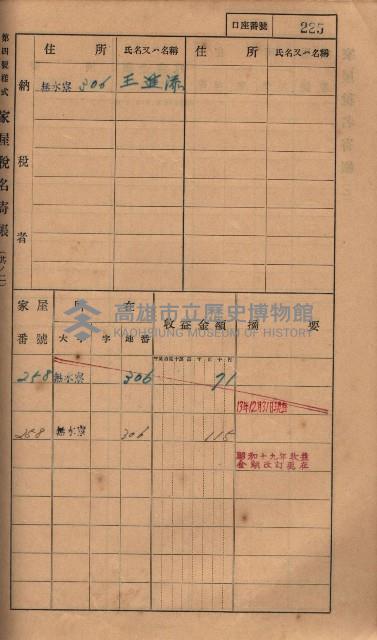 口座番號 225
第四號樣式 家屋稅名寄帳 (其ノ二)
住所 氏名又ハ名稱 住所 氏名又ハ名稱
納稅者
無水寮 306 王進添
家屋番號 所在 收益金額 摘要
大字 字 地番
258 無水寮 306 71
13年12月31日現在
258 無水寮 306 115
昭和十九年收益
金額改訂現在
高雄市立歷史博物館
KAOHSIUNG MUSEUM OF HISTORY